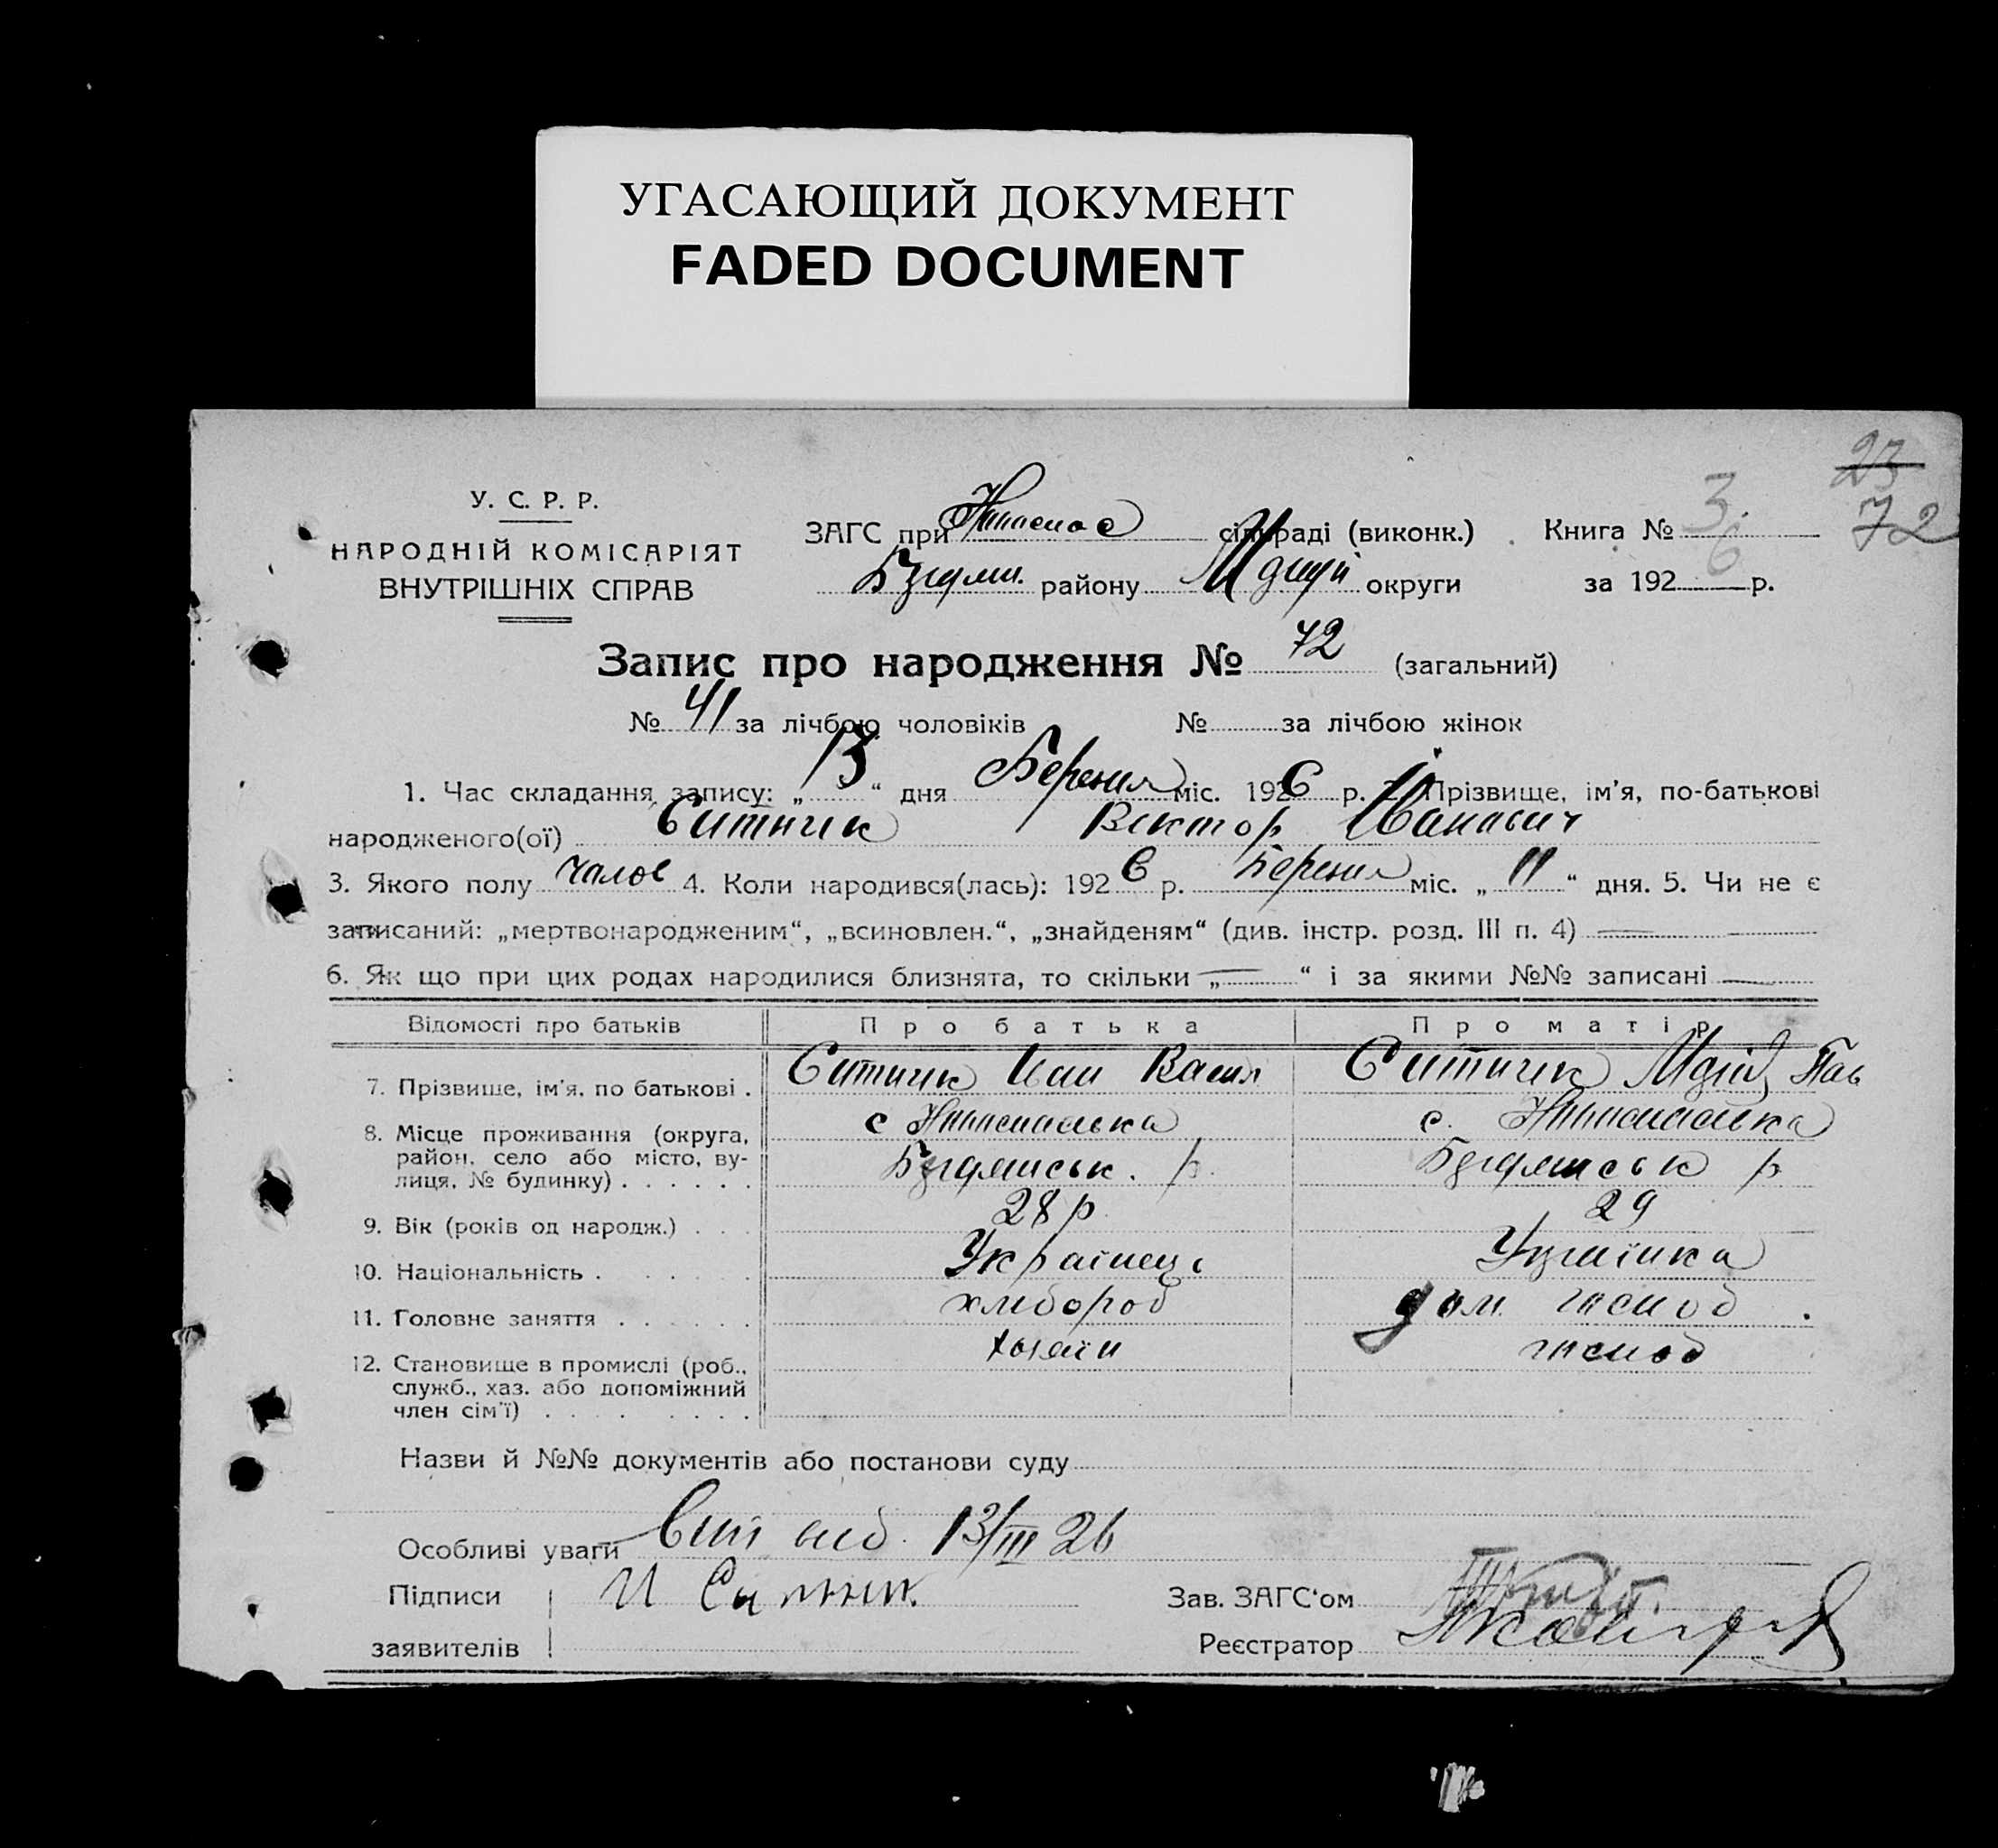 УГАСАЮЩИЙ ДОКУМЕНТ
FADED DOCUMENT
23
72
У. С. Р. Р.
НАРОДНІЙ КОМІСАРІЯТ
ВНУТРІШНІХ СПРАВ
ЗАГС при сільраді (виконк.) Книга № 3
району округи за 1926 р.
Запис про народження № 72 (загальний)
№ 41 за лічбою чоловіків № за лічбою жінок
1. Час складання запису: „ 13 “ дня Березня міс. 1926 р. 2. Прізвище, ім'я, по-батькові
народженого(ої) Ситник Віктор Іванович
3. Якого полу чолов 4. Коли народився(лась): 1926 р. Березня міс. „ 11 “ дня. 5. Чи не є
записаний: „мертвонародженим“, „всиновлен.“, „знайденям“ (див. інстр. розд. III п. 4)
6. Як що при цих родах народилися близнята, то скільки „ “ і за якими №№ записані
Відомості про батьків Про батька Про матір
7. Прізвише, ім'я, по батькові . Ситник Іван Васил Ситник Марія Пав
8. Місце проживання (округа, с с.
район, село або місто, ву- р. р
лиця, № будинку) . . . . . .
9. Вік (років од народж.) . . . 28 р 29
10. Національність . . . . . . Українець Українка
11. Головне заняття . . . . . хлібороб дом. господ.
12. Становище в промислі (роб., хазяїн господ
служб., хаз. або допоміжний
член сім'ї) . . . . . . . .
Назви й №№ документів або постанови суду
Особливі уваги 13/III 26
Підписи И Ситник Зав. ЗАГС'ом
заявителів Реєстратор